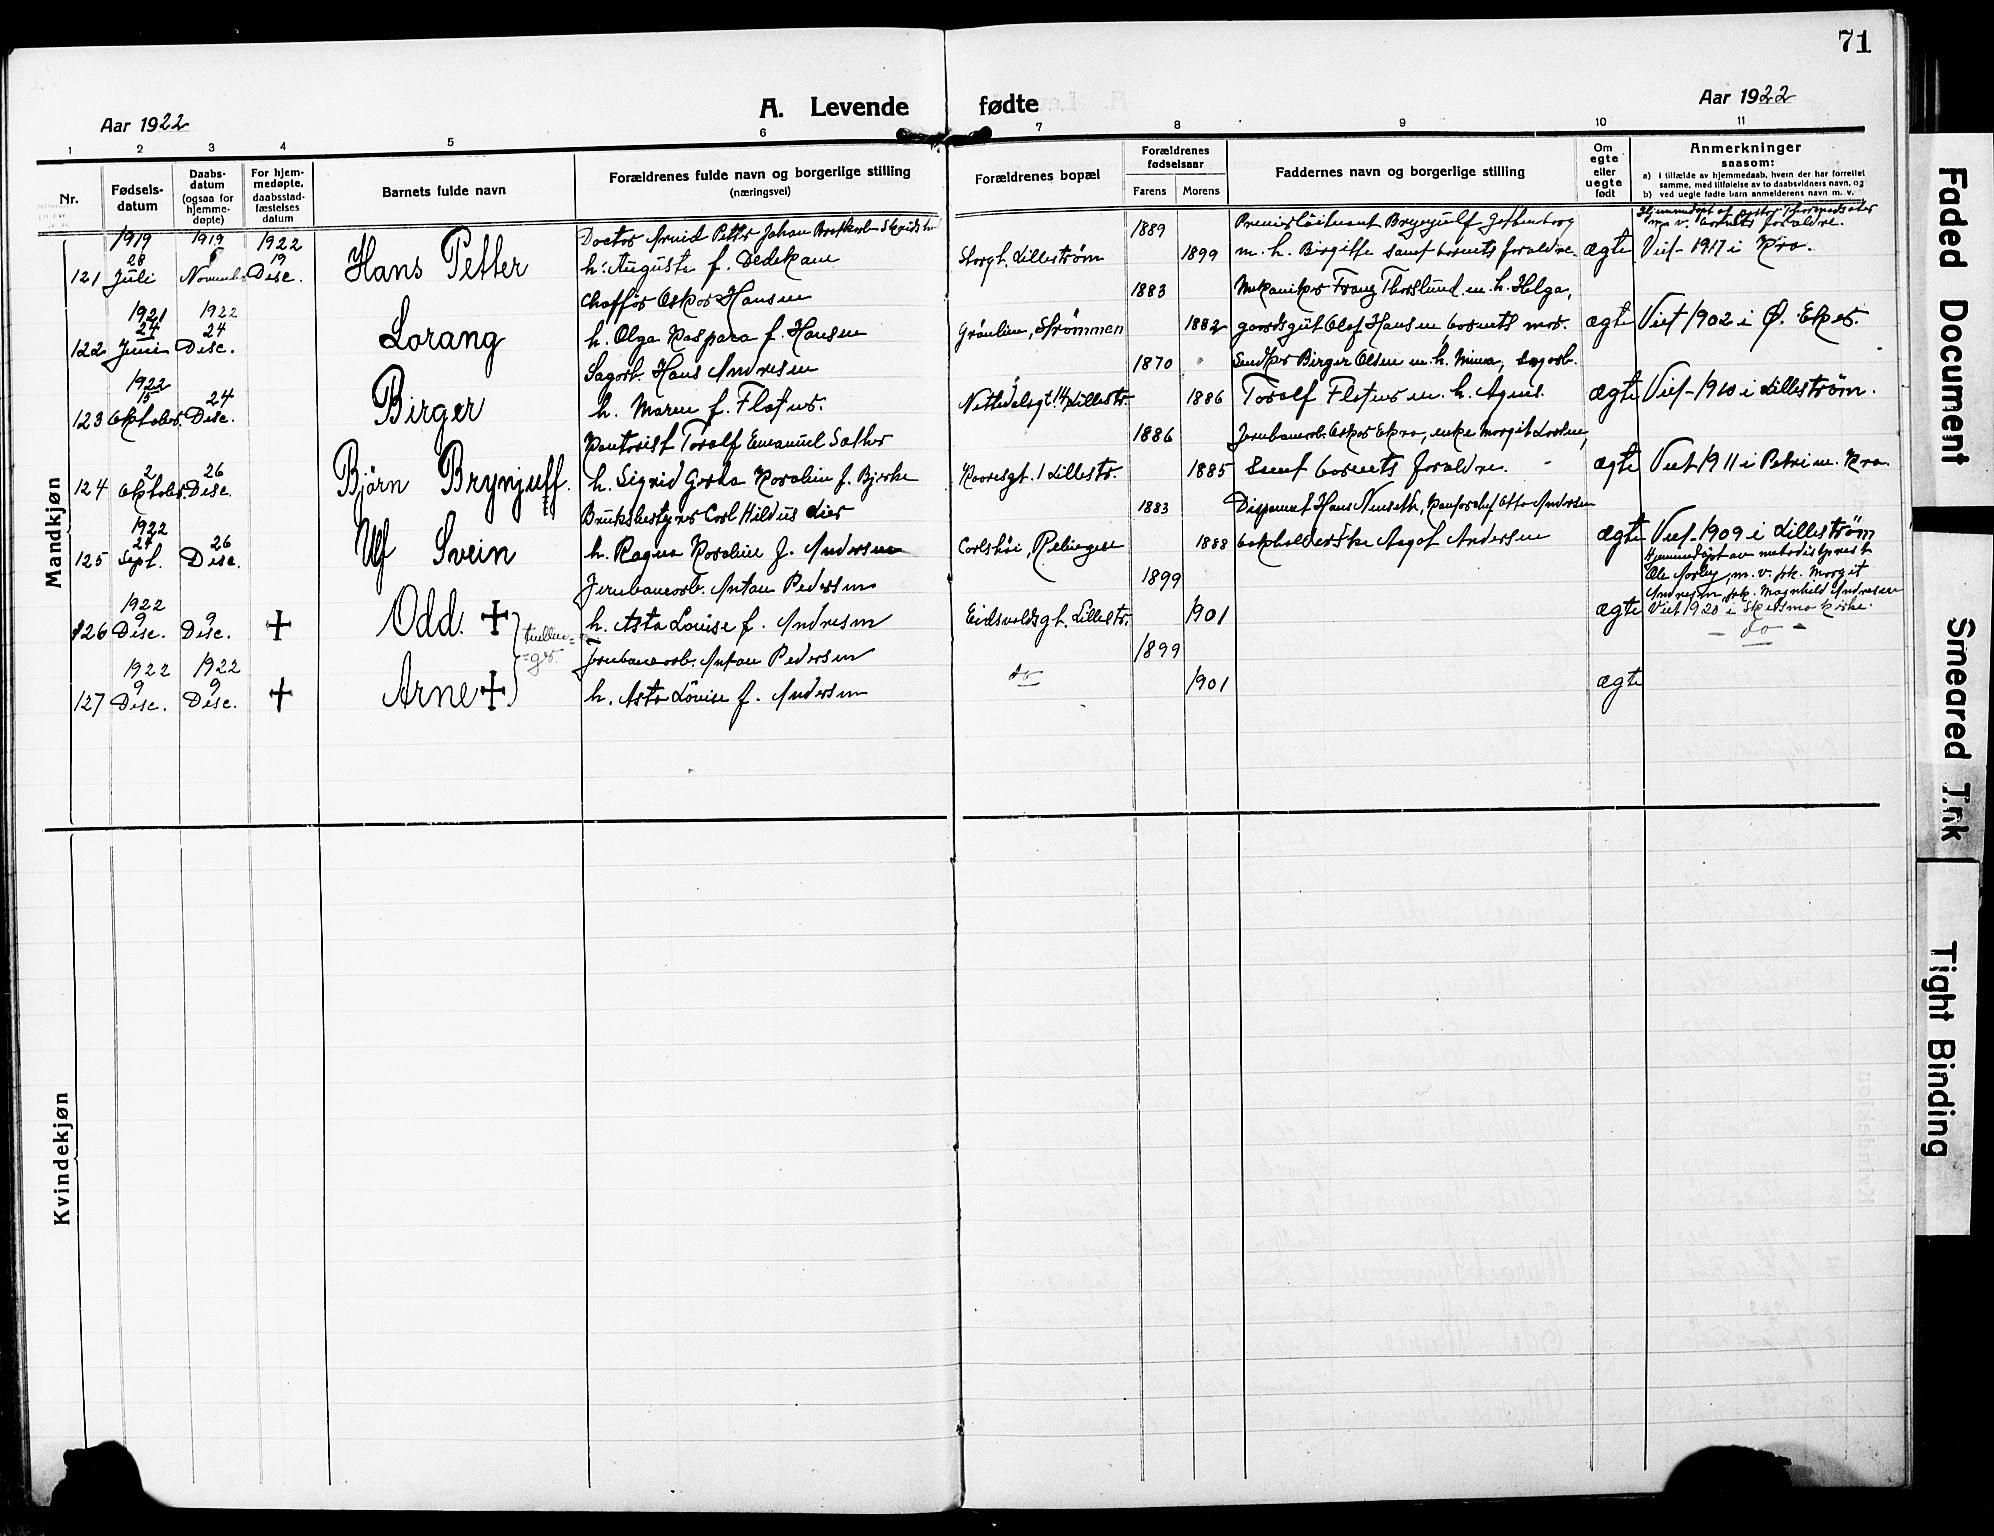 71
A. Levende fødte
Aar 1922
Aar 1922
1 2 3 4 5 6 7 8 9 10 11
Nr.
Fødsels-
datum
Daabs-
datum
(ogsaa for
hjemme-
døpte)
For hjem-
medøpte,
daabsstad-
fæstelses
datum
Barnets fulde navn
Forældrenes fulde navn og borgerlige stilling
(næringsvei)
Forældrenes bopæl
Forældrenes
fødselsaar
Farens Morens
Faddernes navn og borgerlige stilling
Om
egte
eller
uegte
født
Anmerkninger
saasom:
a) i tilfælde av hjemmedaab, hvem der har forrettet
samme, med tilføielse av to daabsvidners navn, og
b) ved uegte fødte barn anmelderens navn m. v.
Mandkjøn
121
1919
28
Juli
1919
Novembr
1922
19
Desc.
Hans Petter
Doctor Arvid Petter Johan
h. Auguste f. Dedekam
Storgt. Lillestrøm
1889
1899
Premierløitnant
m. h. Birgitte samt barnets forældre.
ægte
m. v. barnets forældre.
Viet 1917 i Kra.
122
1921
24
Juni
1922
24
Desc.
Lorang
Chaffør Oskar Hansen
h. Olga Kaspara f. Hansen
Grønlien, Strømmen
1883
1882
Mekaniker Franz Thorslund m. h. Helga,
gaardsgut Olaf Hansen barnets mor.
ægte
Viet 1902 i Ø. Eker.
123
1922
15
Oktober.
24
Desc.
Birger
Sagarb. Hans Andresen
h. Maren f.
Lillestr.
1870
1886
Birger Olsen m. h. Minna, sagarb.
Toralf m. h. Agnes.
ægte
Viet 1910 i Lillestrøm.
124
2
Oktober.
26
Desc.
Bjørn Brynjulf.
Kontorist Toralf Emanuel Sather
h. Sigrid Gerda Rosalie f. Bjerke
Lillestr.
1886
1885
Jernbanearb. Oskar Ekra, enke Margit
samt barnets forældre.
ægte
Viet 1911 i Petri m. Kra.
125
1922
24
Sept.
26
Desc.
Ulf Svein
Bruksbestyrer Carl Hildus Lier
h. Ragna Rosaline f. Andersen
Carlshøi, Rælingen
1883
1888
Disponent Hans
Aagot Andersen
ægte
Viet 1909 i Lillestrøm
126
1922
9
Desc.
9
Desc.
+
Odd. +
Jernbanearb. Anton Pedersen
h. Asta Louise f. Andresen
Eidsvoldsgt. Lillestr.
1899
1901
ægte
Hjemmedøpt av metodistprest
Ole m. v. frk. Margit
Andresen frk. Magnhild Andresen
Viet 1920 i Skedsmo kirke.
tvillin-
ger.
127
1922
9
Desc.
1922
9
Desc.
+
Arne +
Jernbanearb. Anton Pedersen
h. Asta Louise f. Andersen
do
1899
1901
ægte
- do -
Kvindekjøn
Faded Document
Smeared Ink
Tight Binding